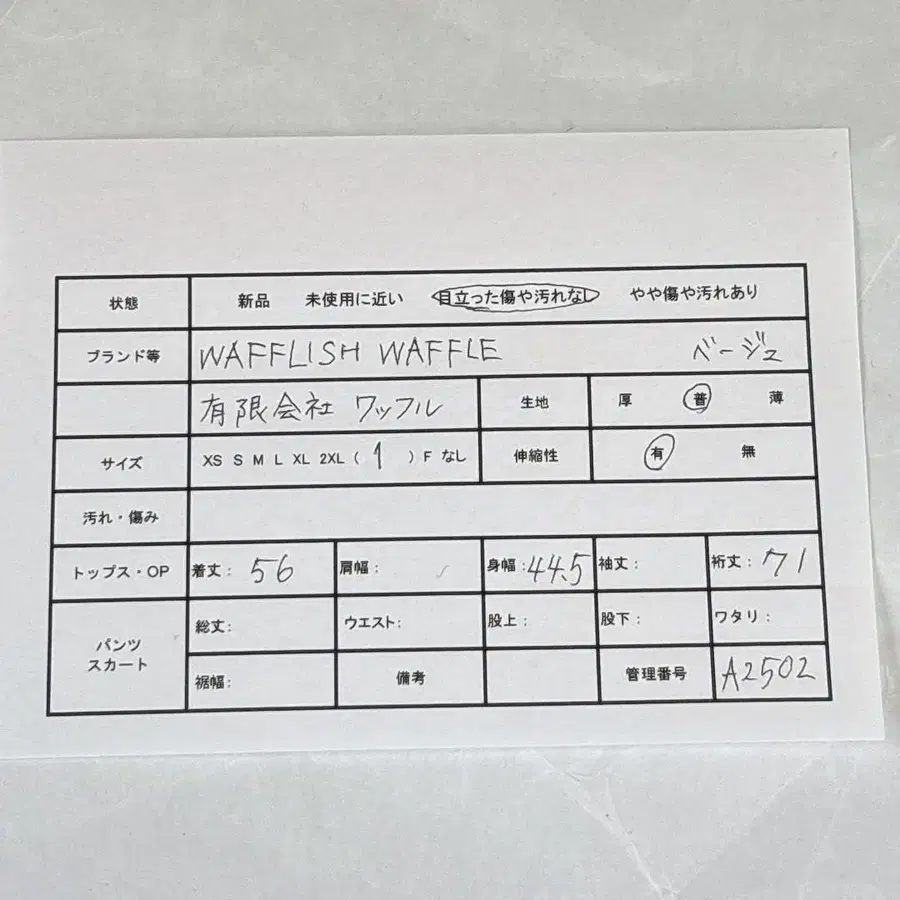 状態 新品 未使用に近い 目立った傷や汚れなし やや傷や汚れあり
ブランド等 WAFFLISH WAFFLE ベージュ
有限会社 ワッフル 生地 厚 普 薄
サイズ XS S M L XL 2XL ( 1 ) F なし 伸縮性 有 無
汚れ・傷み
トップス・OP 着丈: 56 肩幅: 身幅: 44.5 袖丈: 裄丈: 71
パンツ スカート 総丈: ウエスト: 股上: 股下: ワタリ:
裾幅: 備考 管理番号 A2502